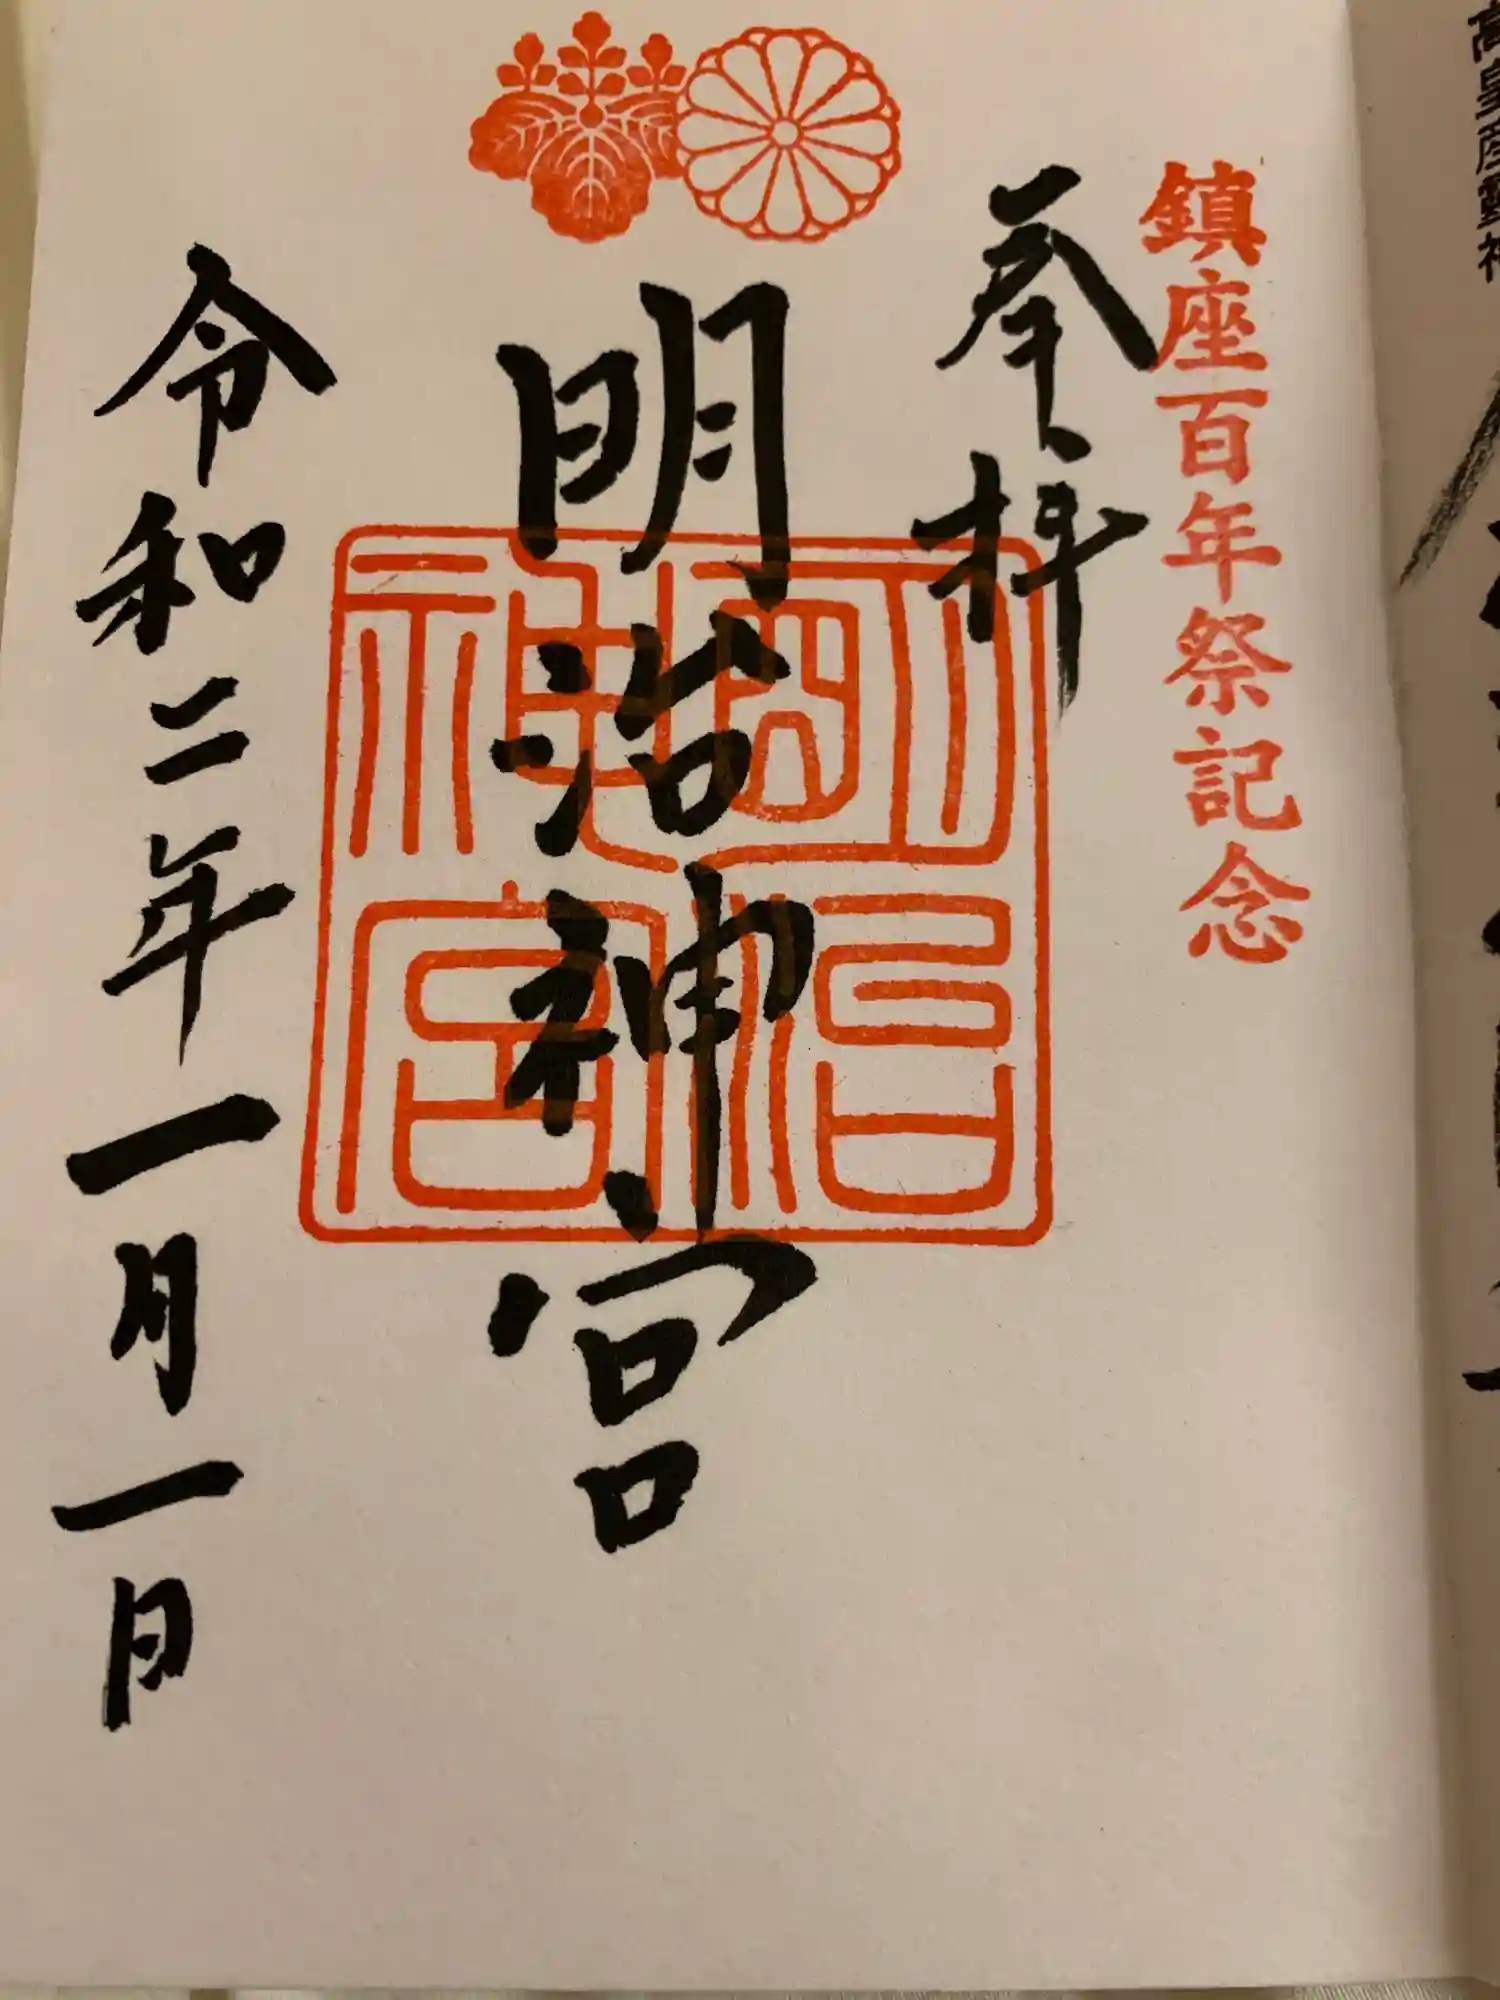 高皇産靈神
鎮座百年祭記念
奉拝
明治神宮
明治神宮
令和二年一月一日